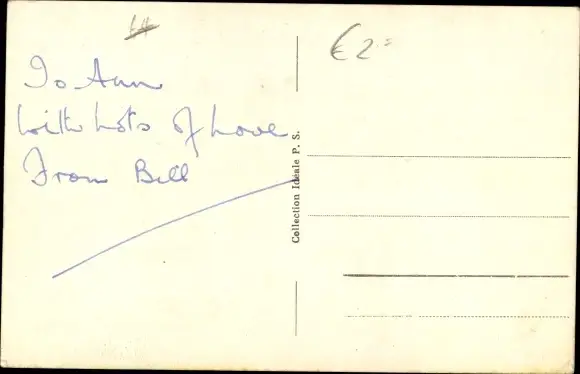 To Ann
with Lots of Love
From Bill
€2=
Collection Idéale P. S.